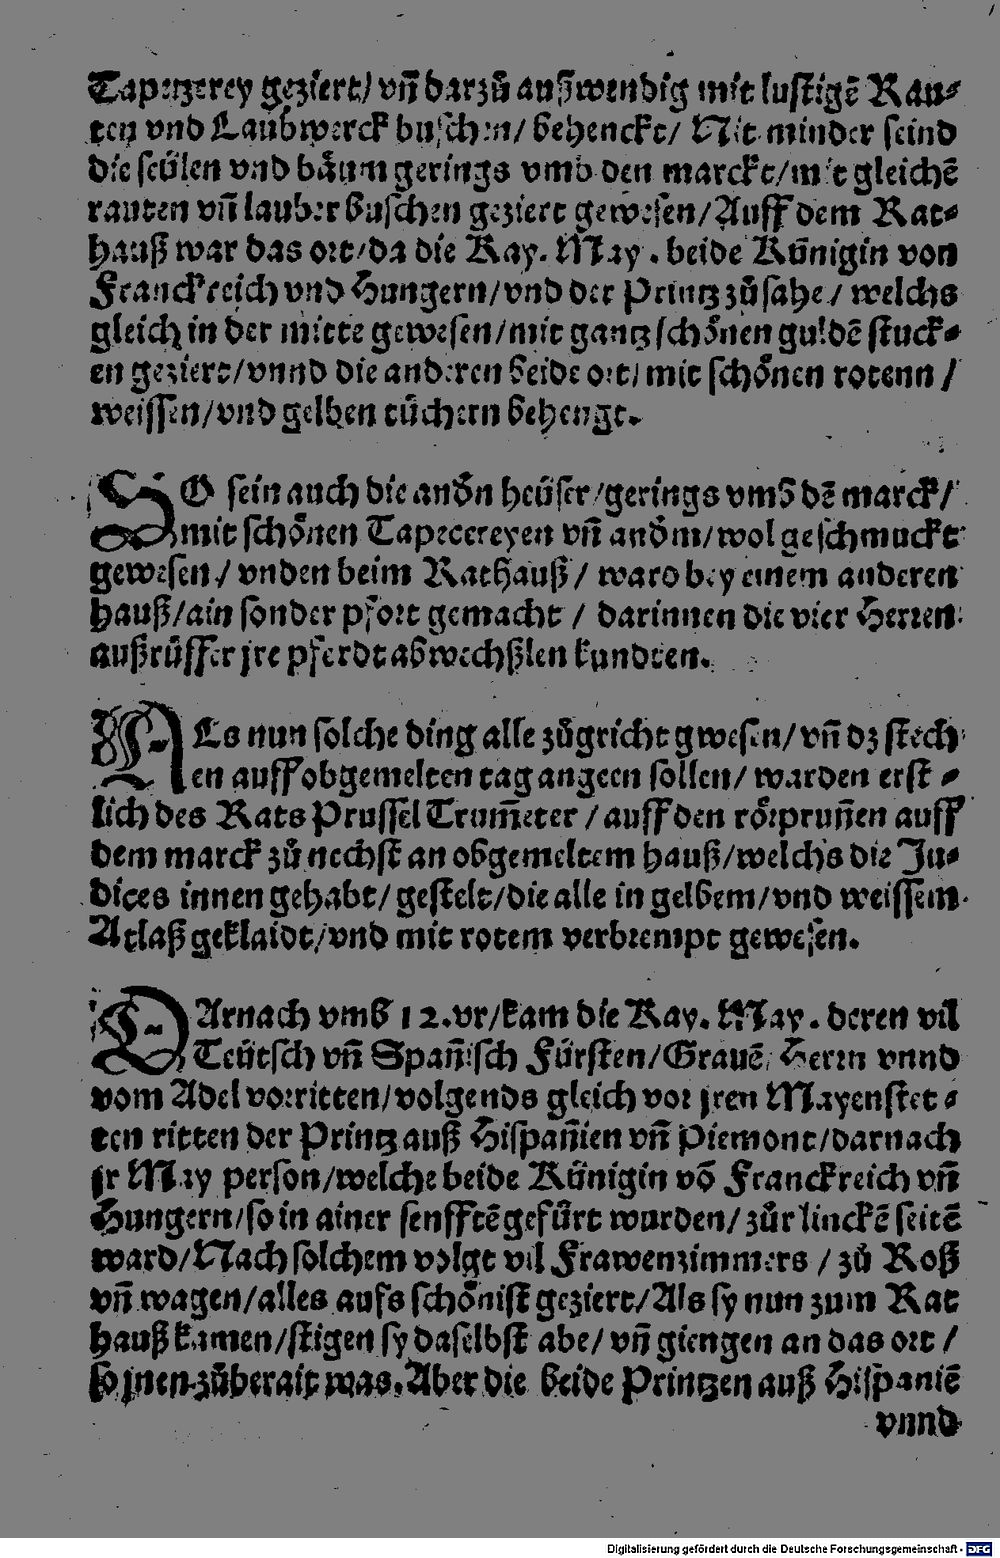 Tapetzerey geziert/ vñ darzů außwendig mit lustigẽ Rau⸗
ten vnd Laubwerck buschen/ behenckt/ Nit minder seind
die seülen vnd bäum gerings vmb den marckt/ mit gleichẽ
rauten vñ lauber buschen geziert gewesen/ Auff dem Rat⸗
hauß war das ort/ da die Kay. May. beide Künigin von
Franckreich vnd Hungern/ vnd der Printz zůsahe/ welchs
gleich in der mitte gewesen/ mit gantz schönen guldẽ stuck⸗
en geziert/ vnnd die anderen beide ort/ mit schönen rotenn/
weissen/ vnd gelben tüchern behengt.
SO sein auch die andn̄ heüser/ gerings vmb dẽ marck/
mit schönen Tapecereyen vñ andm̄/ wol geschmuckt
gewesen/ vnden beim Rathauß/ ward bey einem anderen
hauß/ ain sonder pfort gemacht/ darinnen die vier Herren
außrüffer jre pferdt abwechßlen kundten.
ALs nun solche ding alle zůgricht gwesen/ vñ dz stech
en auff obgemelten tag angeen sollen/ warden erst⸗
lich des Rats Prussel Trum̄eter/ auff den rörprun̄en auff
dem marck zů nechst an obgemeltem hauß/ welchs die Ju⸗
dices innen gehabt/ gestelt/ die alle in gelbem/ vnd weissem
Atlaß geklaidt/ vnd mit rotem verbrempt gewesen.
DArnach vmb 12. vr/ kam die Kay. May. deren vil
Teütsch vñ Span̄isch Fürsten/ Grauẽ/ Herrn vnnd
vom Adel vorritten/ volgends gleich vor jren Mayenstet⸗
ten ritten der Printz auß Hispan̄ien vñ Piemont/ darnach
jr May person/ welche beide Künigin võ Franckreich vñ
Hungern/ so in ainer senfftẽ gefürt wurden/ zůr linckẽ seitẽ
ward/ Nach solchem volgt vil Frawenzimmers/ zů Roß
vñ wagen/ alles aufs schönist geziert/ Als sy nun zum Rat
hauß kamen/ stigen sy daselbst abe/ vñ giengen an das ort/
so jnen zůberait was. Aber die beide Printzen auß Hispaniẽ
vnnd
Digitalisierung gefördert durch die Deutsche Forschungsgemeinschaft - DFG